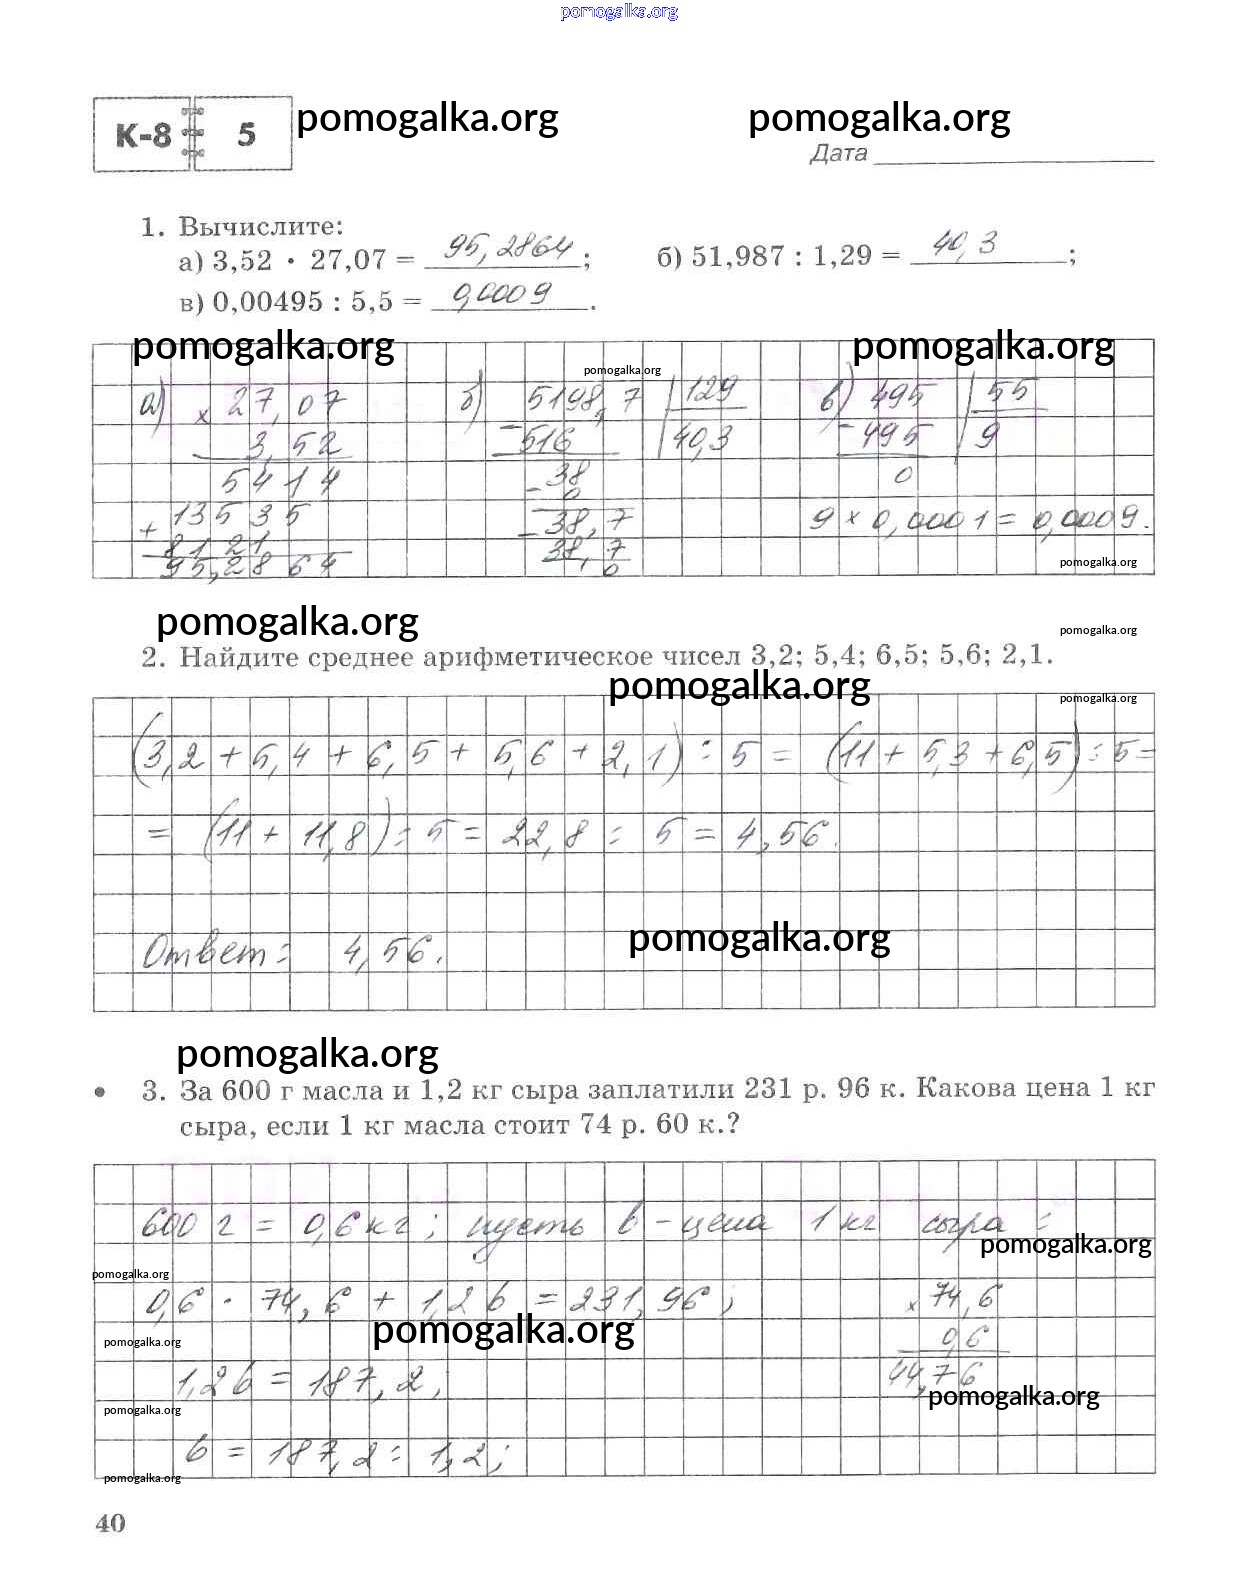 pomogalka.org
К-8 5 pomogalka.org pomogalka.org
Дата
1. Вычислите:
а) 3,52 · 27,07 = 95,2864; б) 51,987 : 1,29 = 40,3;
в) 0,00495 : 5,5 = 0,0009.
pomogalka.org pomogalka.org
pomogalka.org
а) × 27,07 б) 5198,7 129 в) 495 55
3,52 - 516 40,3 - 495 9
5414 - 38 0
+ 13535 0
- 38,7 9 × 0,0001 = 0,0009.
8121 38,7
95,2864 0
pomogalka.org
pomogalka.org pomogalka.org
2. Найдите среднее арифметическое чисел 3,2; 5,4; 6,5; 5,6; 2,1.
pomogalka.org pomogalka.org
(3,2 + 5,4 + 6,5 + 5,6 + 2,1) : 5 = (11 + 5,3 + 6,5) : 5 =
= (11 + 11,8) : 5 = 22,8 : 5 = 4,56.
Ответ: 4,56.
pomogalka.org
pomogalka.org
• 3. За 600 г масла и 1,2 кг сыра заплатили 231 р. 96 к. Какова цена 1 кг
сыра, если 1 кг масла стоит 74 р. 60 к.?
600 г = 0,6 кг; пусть b - цена 1 кг сыра:
pomogalka.org
pomogalka.org
0,6 · 74,6 + 1,2b = 231,96; × 74,6
pomogalka.org
pomogalka.org 0,6
1,2b = 187,2; 44,76
pomogalka.org
pomogalka.org
b = 187,2 : 1,2;
pomogalka.org
40